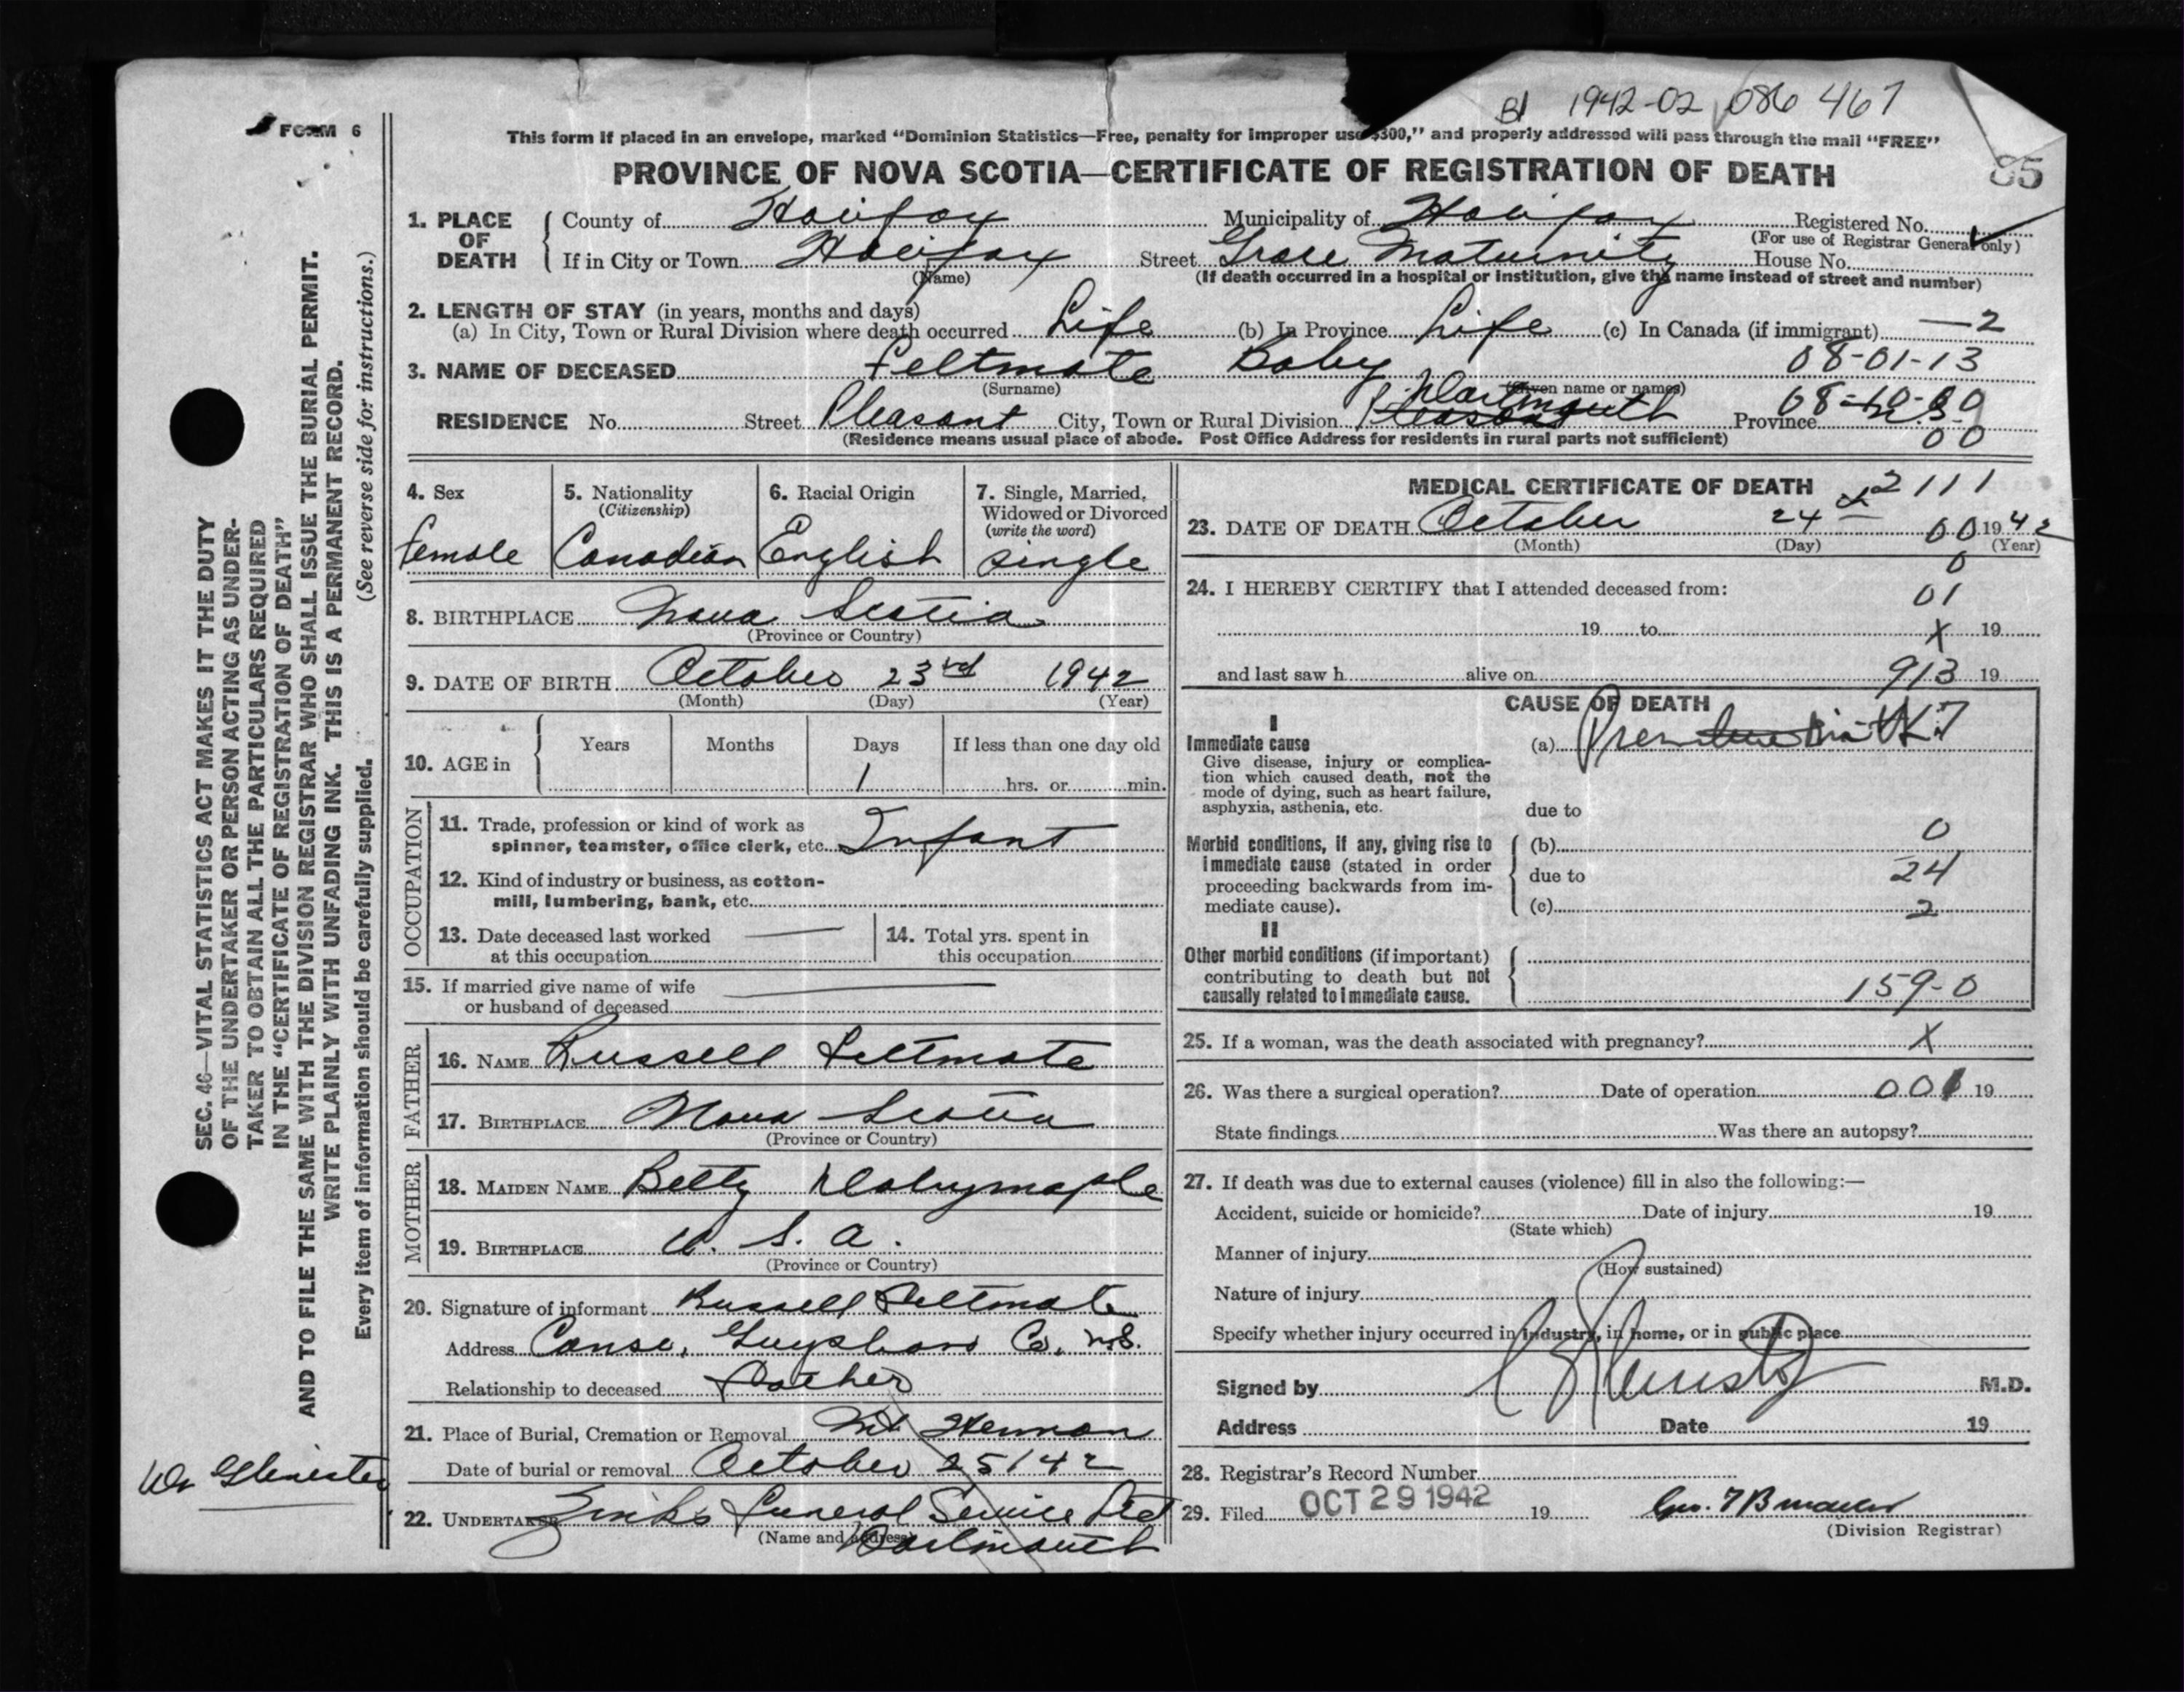 B1 1942-02 086 467
FORM 6
This form if placed in an envelope, marked "Dominion Statistics—Free, penalty for improper use $300," and properly addressed will pass through the mail "FREE"
PROVINCE OF NOVA SCOTIA—CERTIFICATE OF REGISTRATION OF DEATH
85
1. PLACE OF DEATH
County of Halifax Municipality of Halifax Registered No.
(For use of Registrar General only)
If in City or Town Halifax Street Grace Maternity House No.
(Name) (If death occurred in a hospital or institution, give the name instead of street and number)
2. LENGTH OF STAY (in years, months and days)
(a) In City, Town or Rural Division where death occurred Life (b) In Province Life (c) In Canada (if immigrant) —2
08-01-13
3. NAME OF DECEASED Feltmate Baby
(Surname) (Given name or names)
RESIDENCE No. Street Pleasant City, Town or Rural Division Dartmouth Province N.S.
00
(Residence means usual place of abode. Post Office Address for residents in rural parts not sufficient)
4. Sex
female
5. Nationality
(Citizenship)
Canadian
6. Racial Origin
English
7. Single, Married, Widowed or Divorced
(write the word)
single
8. BIRTHPLACE Nova Scotia
(Province or Country)
9. DATE OF BIRTH October 23rd 1942
(Month) (Day) (Year)
10. AGE in
Years Months Days If less than one day old
1 hrs. or min.
OCCUPATION
11. Trade, profession or kind of work as
spinner, teamster, office clerk, etc. Infant
12. Kind of industry or business, as cotton-
mill, lumbering, bank, etc.
13. Date deceased last worked
at this occupation —
14. Total yrs. spent in
this occupation
15. If married give name of wife
or husband of deceased —
FATHER
16. NAME Russell Feltmate
17. BIRTHPLACE Nova Scotia
(Province or Country)
MOTHER
18. MAIDEN NAME Betty
19. BIRTHPLACE U. S. A.
(Province or Country)
20. Signature of informant Russell Feltmate
Address Canso, Guysboro Co. N.S.
Relationship to deceased Father
21. Place of Burial, Cremation or Removal Mt Hermon
Date of burial or removal October 25/42
22. UNDERTAKER Zinks Funeral Service Ltd
(Name and address) Dartmouth
MEDICAL CERTIFICATE OF DEATH
2111
23. DATE OF DEATH October 24 00 1942
(Month) (Day) (Year)
0
24. I HEREBY CERTIFY that I attended deceased from:
01
19 to X 19
and last saw h alive on 913 19
CAUSE OF DEATH
I
Immediate cause
Give disease, injury or complica-
tion which caused death, not the
mode of dying, such as heart failure,
asphyxia, asthenia, etc.
(a) Premature birth
due to
Morbid conditions, if any, giving rise to
immediate cause (stated in order
proceeding backwards from im-
mediate cause).
0
(b)
due to 24
(c) 2
II
Other morbid conditions (if important)
contributing to death but not
causally related to immediate cause.
159-0
25. If a woman, was the death associated with pregnancy? X
26. Was there a surgical operation? Date of operation 001 19
State findings Was there an autopsy?
27. If death was due to external causes (violence) fill in also the following:—
Accident, suicide or homicide? Date of injury 19
(State which)
Manner of injury
(How sustained)
Nature of injury
Specify whether injury occurred in industry, in home, or in public place
Signed by M.D.
Address Date 19
28. Registrar's Record Number
29. Filed OCT 29 1942 19
(Division Registrar)
SEC. 46—VITAL STATISTICS ACT MAKES IT THE DUTY
OF THE UNDERTAKER OR PERSON ACTING AS UNDER-
TAKER TO OBTAIN ALL THE PARTICULARS REQUIRED
IN THE "CERTIFICATE OF REGISTRATION OF DEATH"
AND TO FILE THE SAME WITH THE DIVISION REGISTRAR WHO SHALL ISSUE THE BURIAL PERMIT.
WRITE PLAINLY WITH UNFADING INK. THIS IS A PERMANENT RECORD.
Every item of information should be carefully supplied. (See reverse side for instructions.)
Dr Glenister